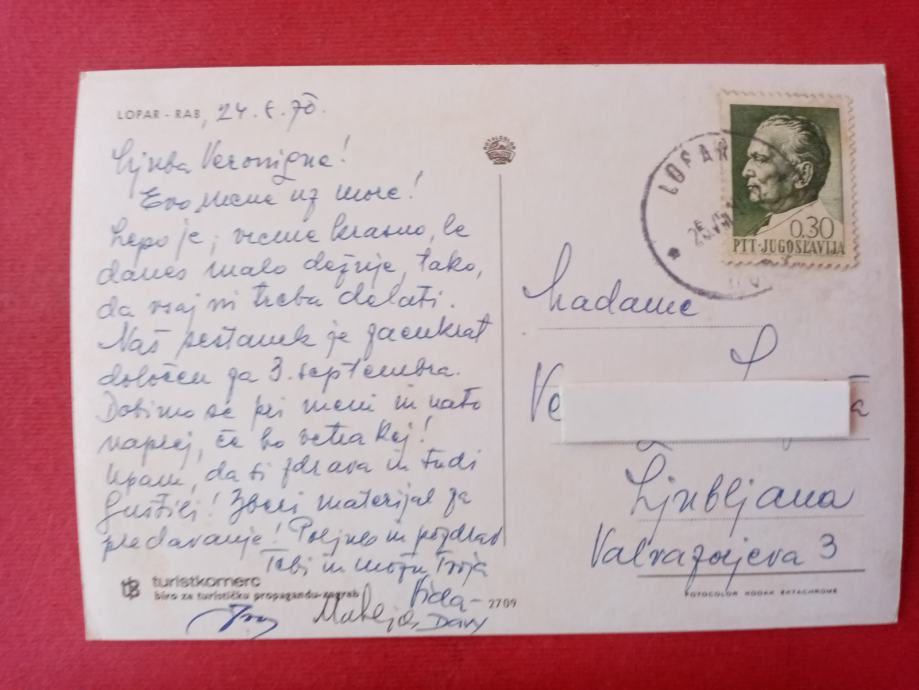 LOPAR - RAB, 24. 8. 70.
Ljuba Veronique!
Evo mene uz more!
Lepo je, vreme krasno, le
danes malo dežuje, tako,
da vsaj ni treba delati.
Naš sestanek je zaenkrat
določen za 3. septembra.
Dobimo se pri meni in nato
naprej, če bo vetra kaj!
Upam, da si zdrava in tudi
Guštiči! Zberi material za
predavanje! Poljub in pozdrav
Tebi in možu Tvoja
Vida -
Matejas Davy
turistkomerc
biro za turističku propagandu-zagreb
2709
LOPAR
0.30
PTT-JUGOSLAVIJA
Madame
Ve
Ljubljana
Valvazorjeva 3
FOTOCOLOR KODAK EKTACHROME